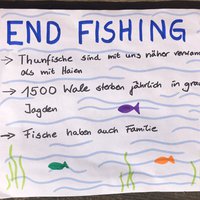 END FISHING
→ Thunfische sind mit uns näher
als mit Haien
→ 1500 Wale sterben jährlich in
Jagden
→ Fische haben auch Familie